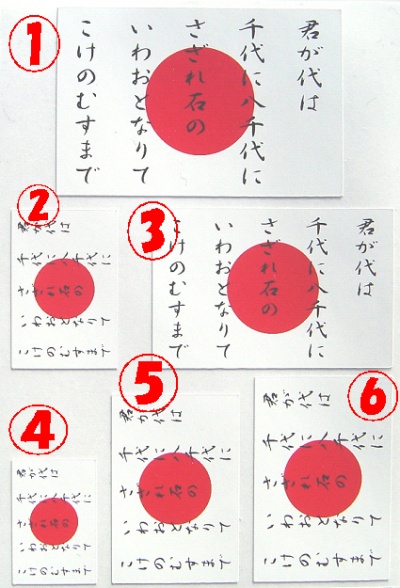 1
君が代は
千代に八千代に
さざれ石の
いわおとなりて
こけのむすまで
2
君が代は
千代に八千代に
さざれ石の
いわおとなりて
こけのむすまで
3
君が代は
千代に八千代に
さざれ石の
いわおとなりて
こけのむすまで
4
君が代は
千代に八千代に
さざれ石の
いわおとなりて
こけのむすまで
5
君が代は
千代に八千代に
さざれ石の
いわおとなりて
こけのむすまで
6
君が代は
千代に八千代に
さざれ石の
いわおとなりて
こけのむすまで